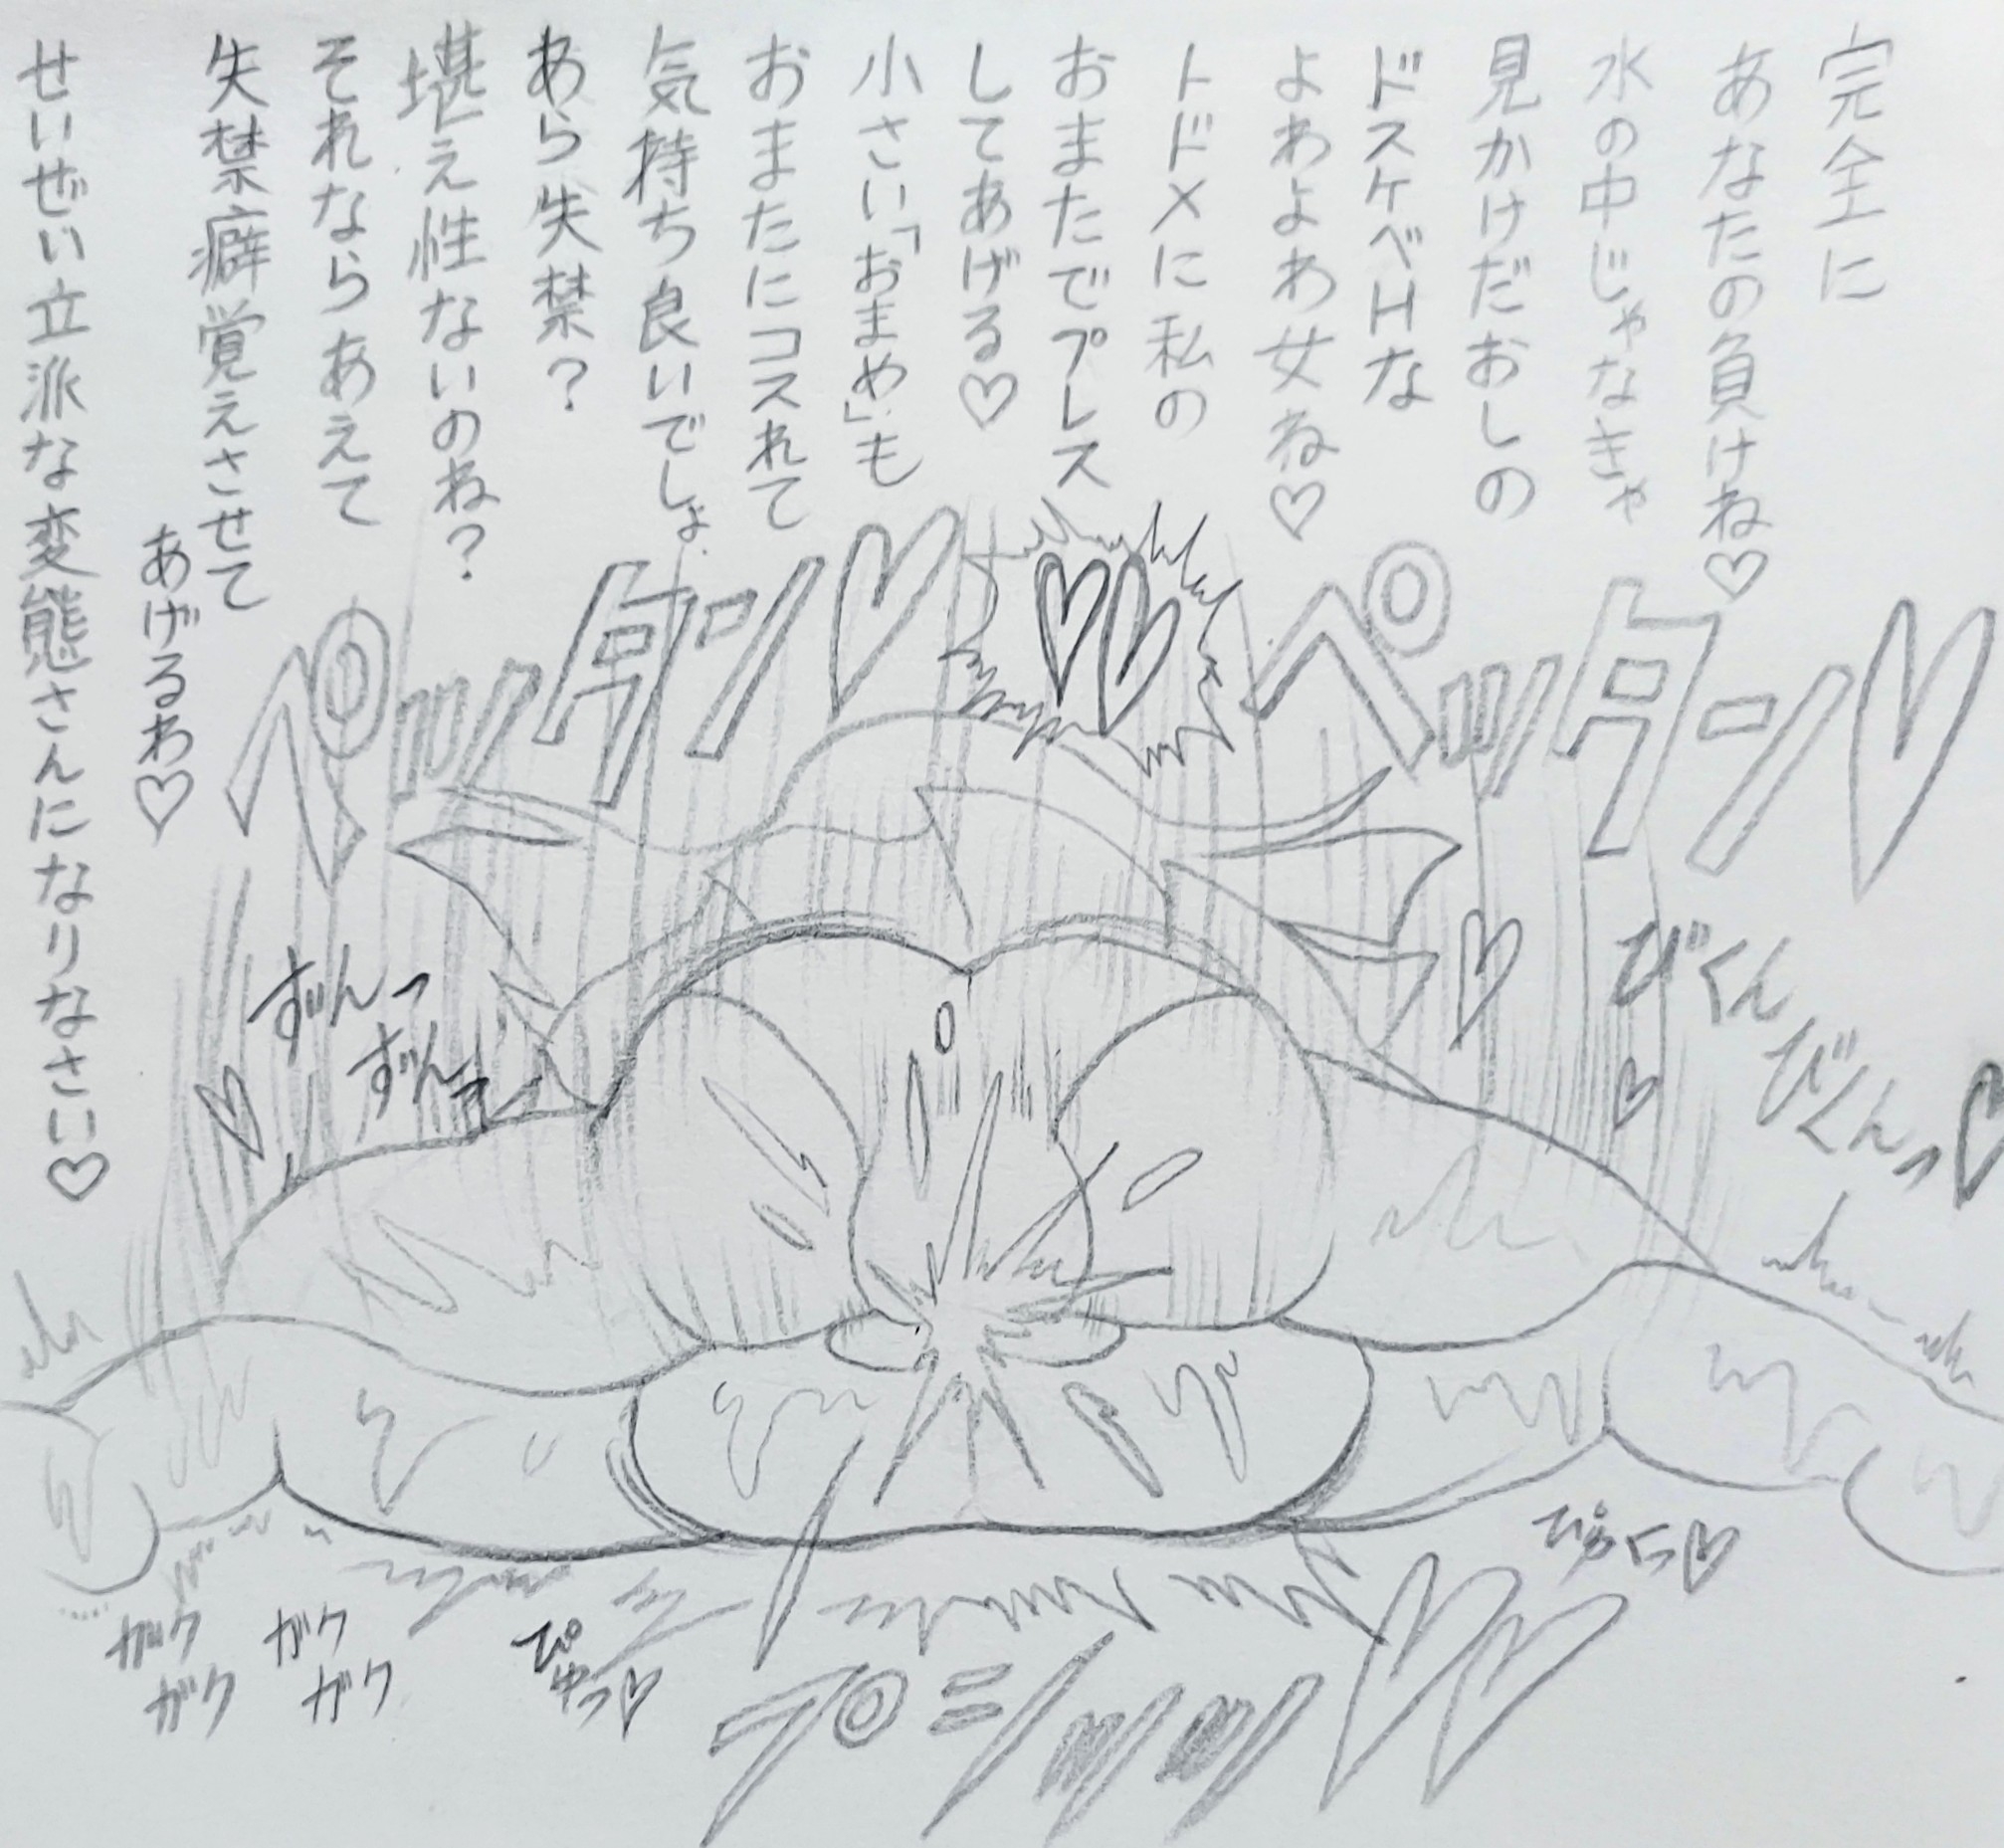 完全に
あなたの負けね♡
水の中じゃなきゃ
見かけだおしの
ドスケベHな
よわよわ女ね♡
トドメに私の
おまたでプレス
してあげる♡
小さい「おまめ」も
おまたにコスれて
気持ち良いでしょ
あら失禁？
堪え性ないのね？
それならあえて
失禁癖覚えさせて
あげるわ♡
せいぜい立派な変態さんになりなさい♡
ペッタン♡
♡♡
ペッタン♡
びくん
びくんっ♡
ずんっ
ずんっ
♡
ガクガク
ガクガク
ぴゅっ♡
プシッッ♡♡